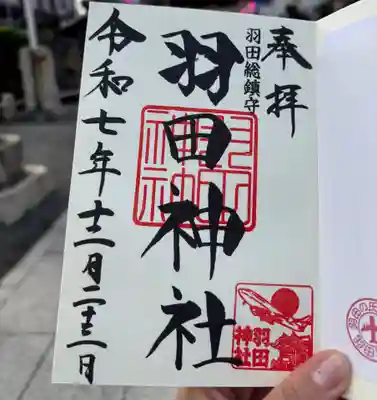 奉拝
羽田総鎮守
羽田神社
羽田神社
令和七年十二月二十三日
羽田神社